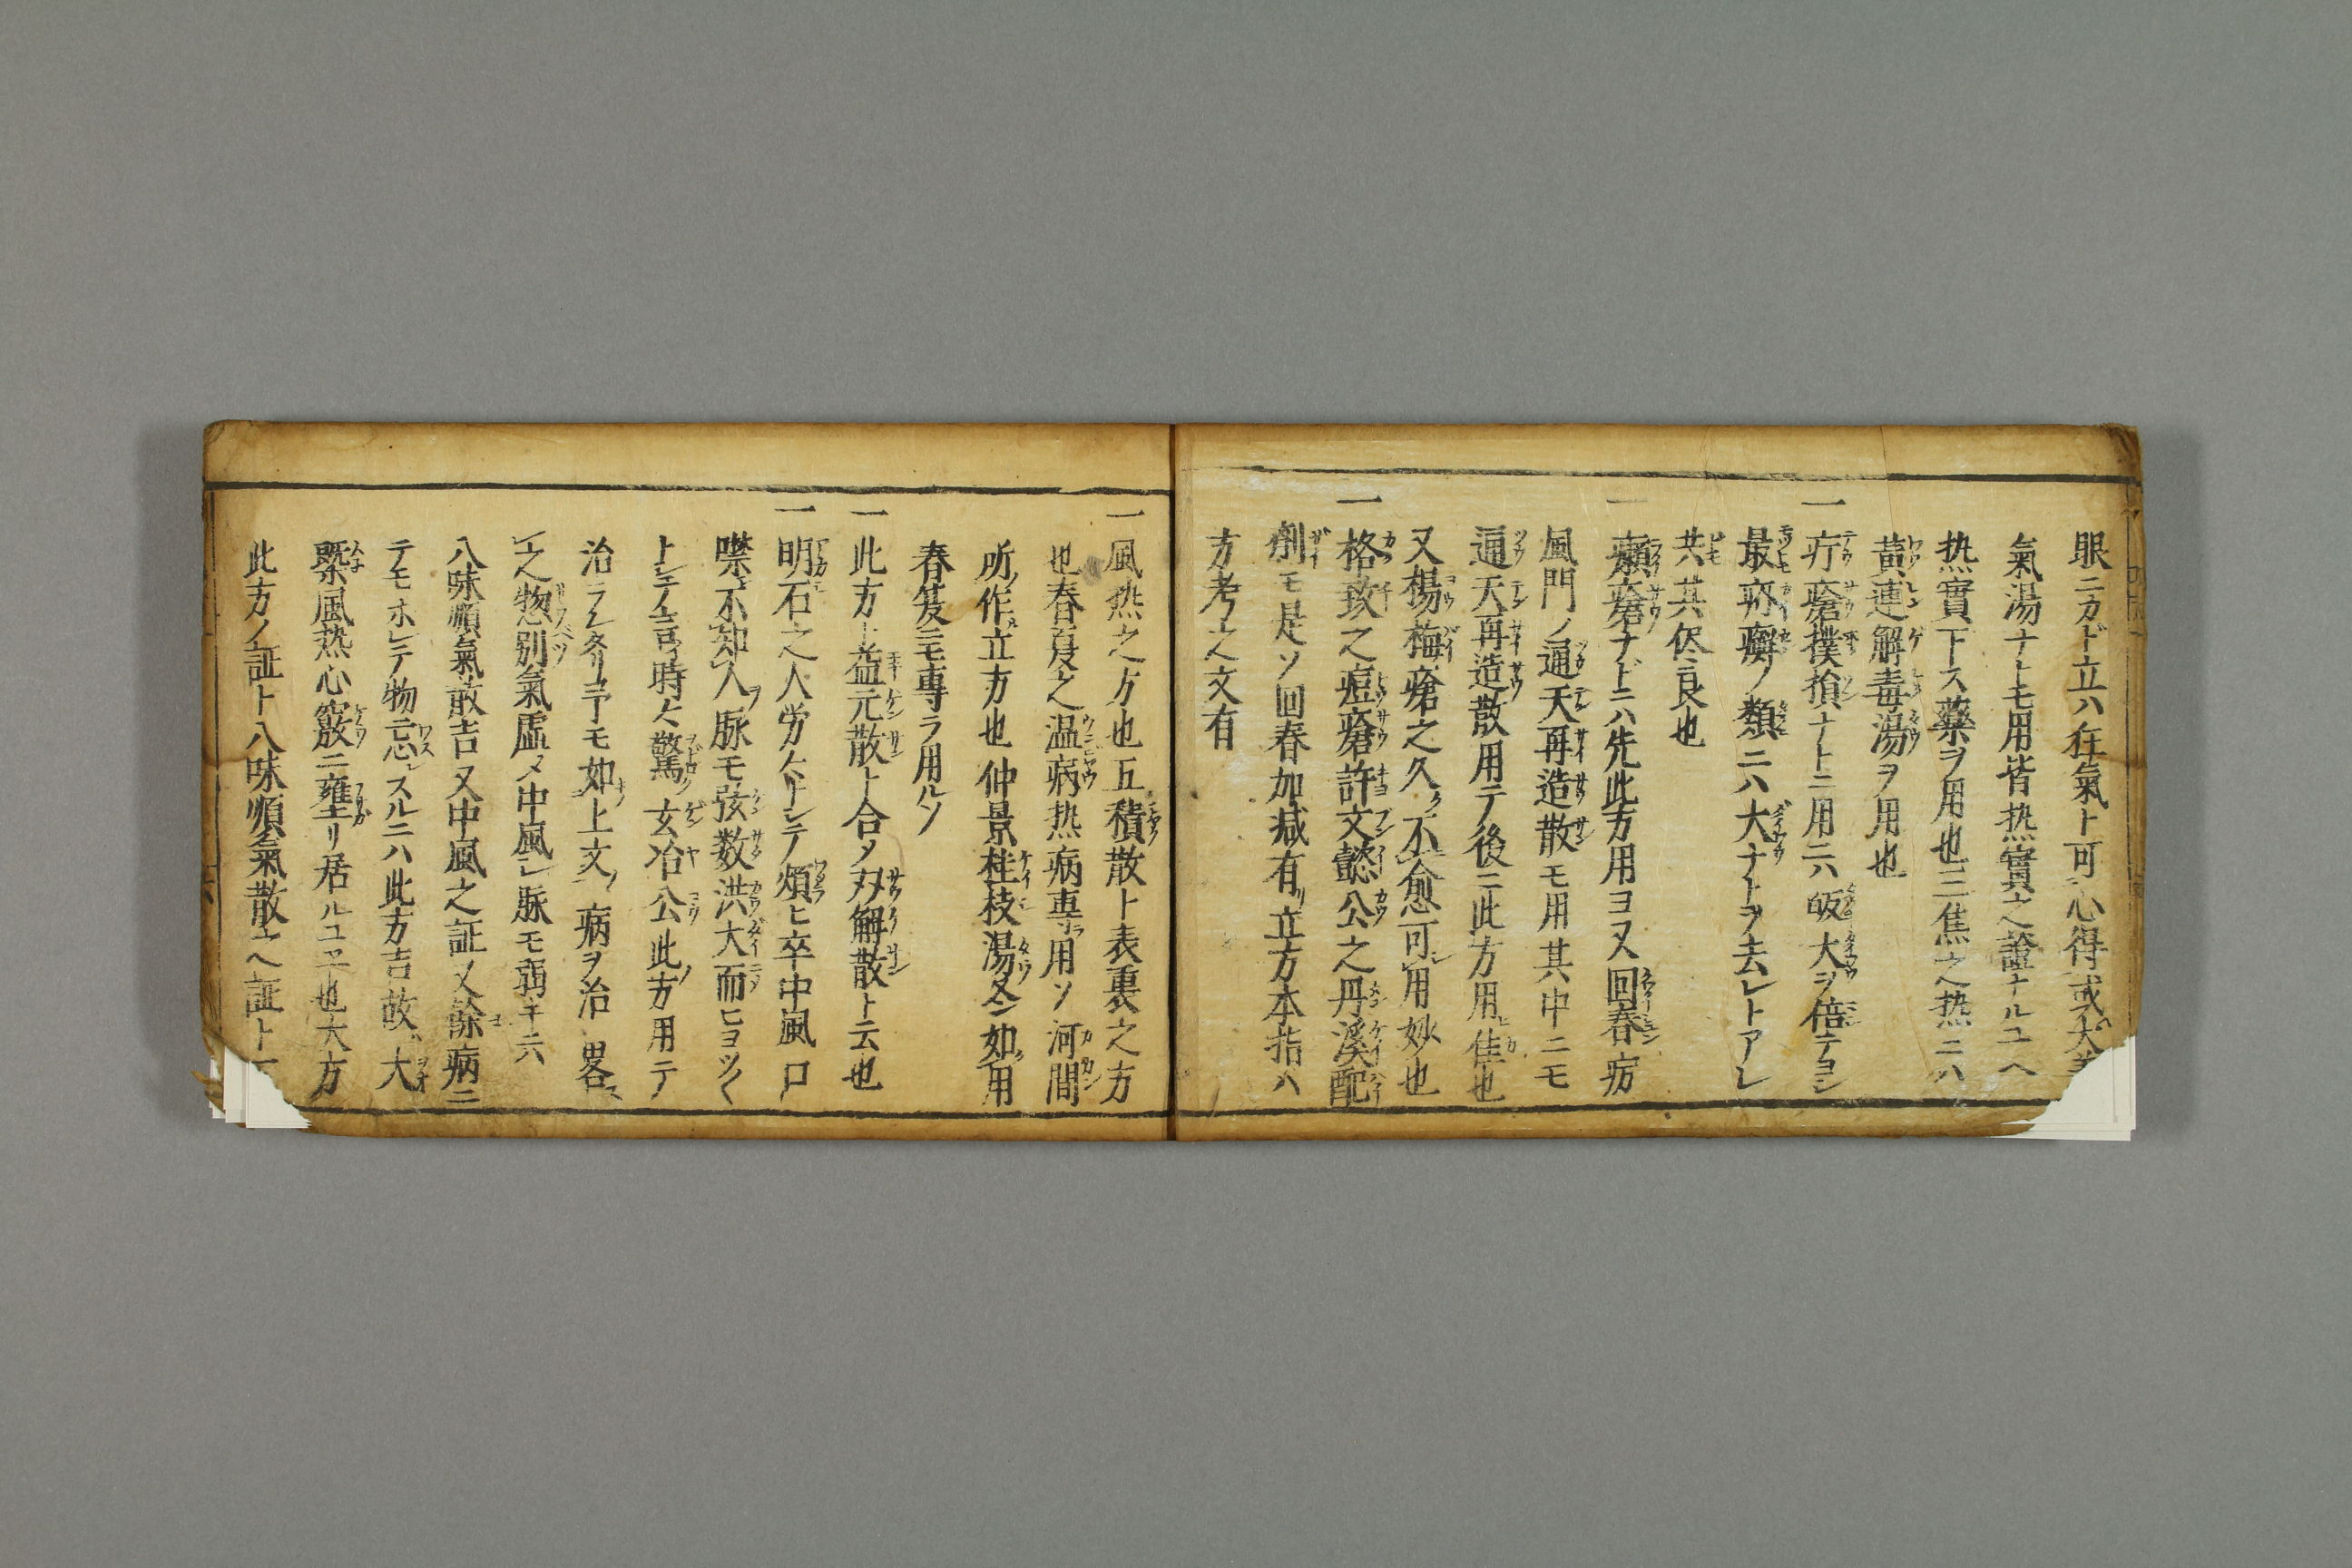 眼ニカド立六在氣ト可心得或大
氣湯ナトモ用皆热實之證ナルユヘ
热實下ス藥ヲ用也三焦之热ニハ
黄連解毒湯ヲ用也
一疔瘡撲損ナトニ用ニ六皈大ヲ倍テヨシ
最疥癬ノ類ニハ大ナトヲ去レトアレ
共其侭良也
一癩瘡ナドニハ先此方用ヨ又回春疠
風門ノ通天再造散モ用其中ニモ
通天再造散用テ後ニ此方用佳也
又楊梅瘡之久不愈可用妙也
一格致之痘瘡許文懿公之丹溪配
剤モ是ソ回春加减有立方本指ハ
方考之文有
一風热之方也五積散ト表裏之方
也春夏之温病热病専用ソ河間
所作立方也仲景桂枝湯冬如用
春夏ニモ專ラ用ルソ
一此方ト益元散ト合メ双解散ト云也
一明石之人労トシテ煩ヒ卒中風口
噤不知人脉モ弦数洪大而ヒヨツ〱
ト言時々驚玄冶公此方用テ
治ラルヽモ如上文病ヲ治畧
之惣别氣虚メ中風脉モ弱キ六
八味順氣散吉又中風之証ノ餘病ニ
テモホレテ物忘スルニハ此方吉故大
槩風热心竅ニ壅リ居ルユヱ也大方
此方ノ証ト八味順氣散之証ト一